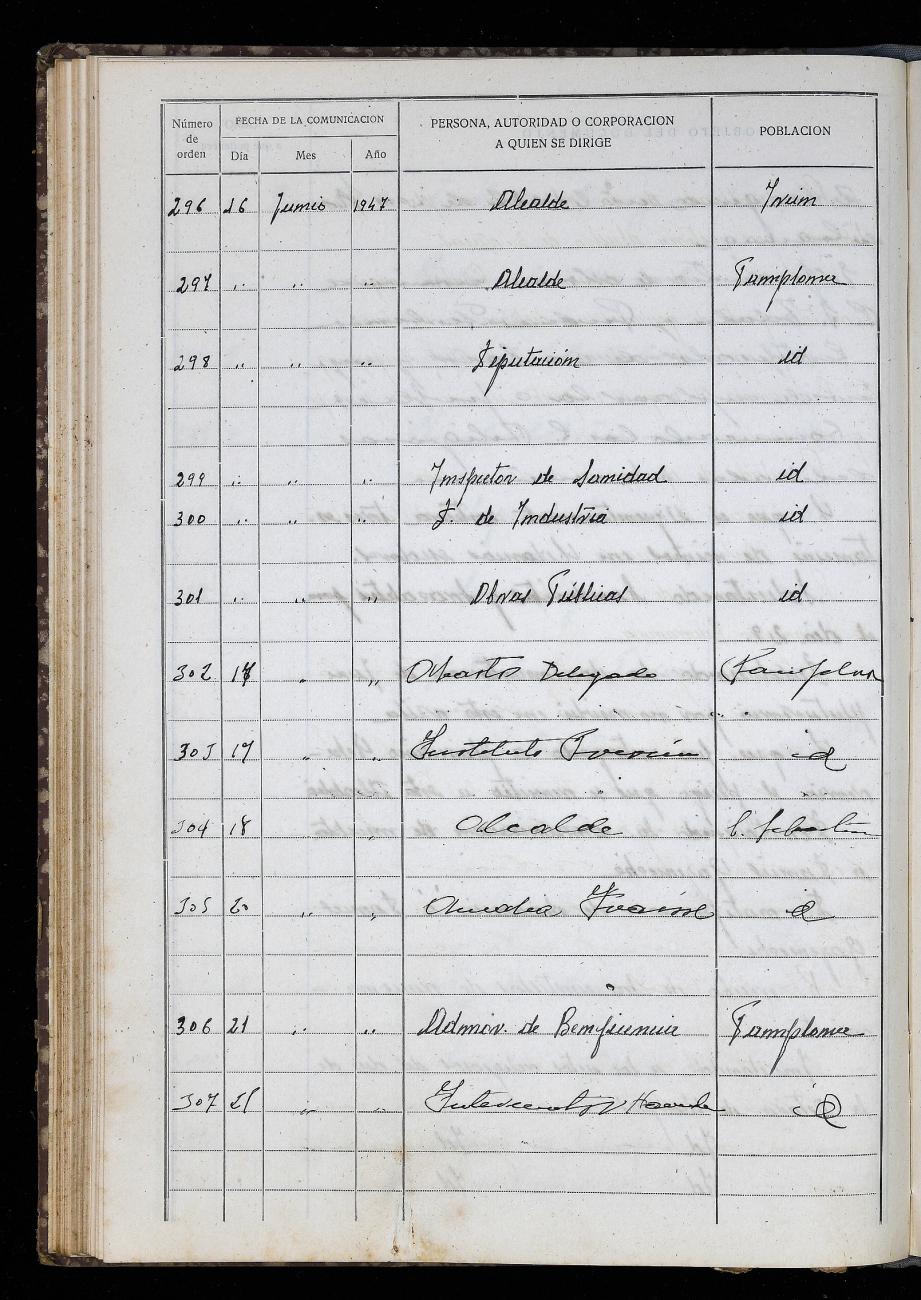 Número de orden FECHA DE LA COMUNICACION PERSONA, AUTORIDAD O CORPORACION A QUIEN SE DIRIGE POBLACION
Día Mes Año
296 16 Junio 1947 Alcalde Irún
297 " " " Alcalde Pamplona
298 " " " Diputación id
299 " " " Inspector de Sanidad id
300 " " " J. de Industria id
301 " " " Obras Públicas id
302 17 " " Abastos Delegado Pamplona
303 17 " " Instituto Previsión id
304 18 " Alcalde S. Sebastián
305 20 " " Amalia id
306 21 " " Admor. de Beneficencia Pamplona
307 21 " " Interventor Hacienda id